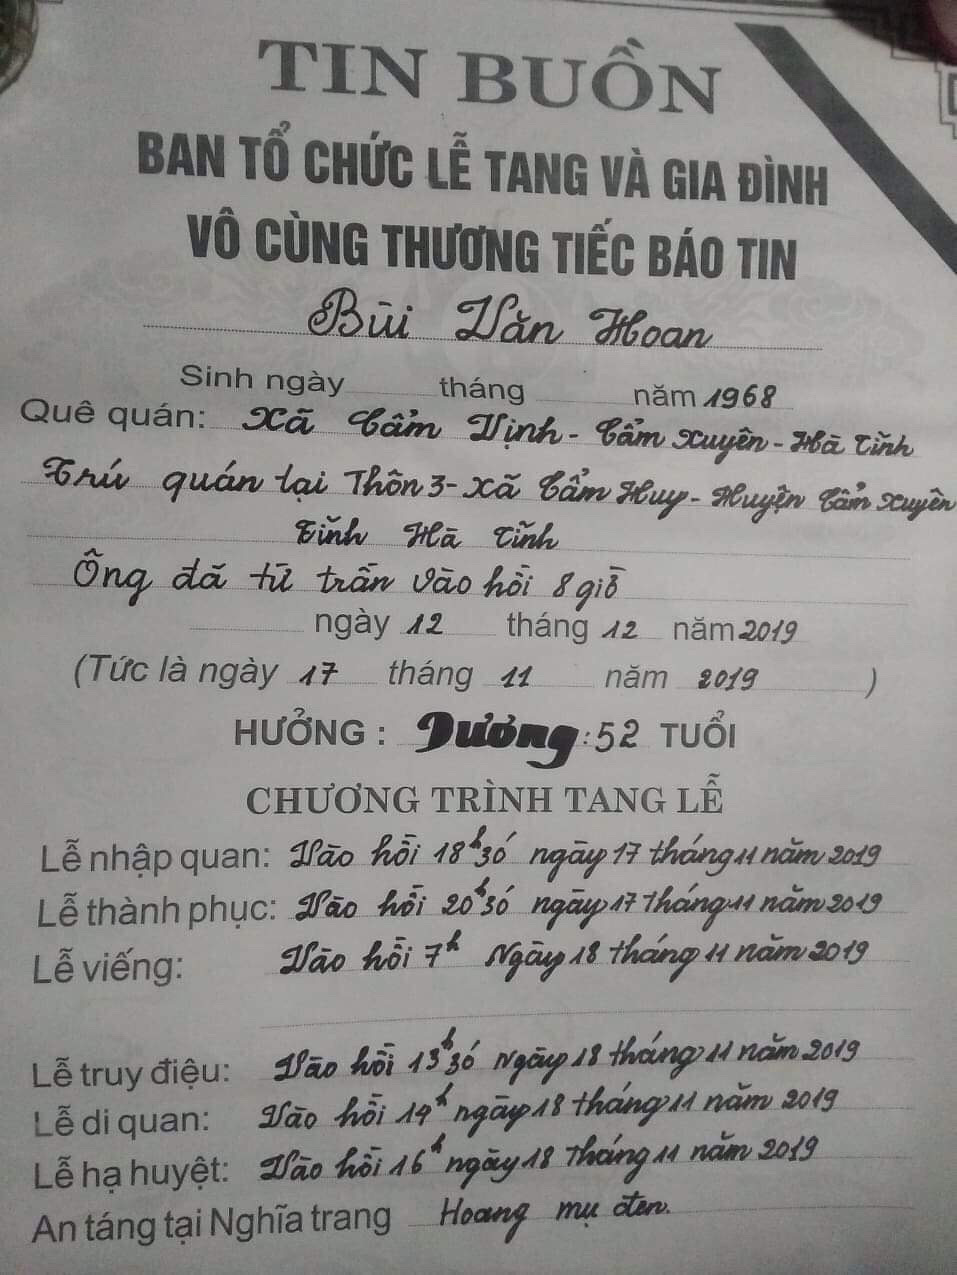 TIN BUỒN
BAN TỔ CHỨC LỄ TANG VÀ GIA ĐÌNH
VÔ CÙNG THƯƠNG TIẾC BÁO TIN
Bùi Văn Hoan
Sinh ngày tháng năm 1968
Quê quán: Xã Cẩm Vịnh - Cẩm Xuyên - Hà Tĩnh
Trú quán tại Thôn 3 - Xã Cẩm Huy - Huyện Cẩm Xuyên
Tỉnh Hà Tĩnh
Ông đã từ trần vào hồi 8 giờ
ngày 12 tháng 12 năm 2019
(Tức là ngày 17 tháng 11 năm 2019 )
HƯỞNG : Dương : 52 TUỔI
CHƯƠNG TRÌNH TANG LỄ
Lễ nhập quan: Vào hồi 18h30 ngày 17 tháng 11 năm 2019
Lễ thành phục: Vào hồi 20h30 ngày 17 tháng 11 năm 2019
Lễ viếng: Vào hồi 7h Ngày 18 tháng 11 năm 2019
Lễ truy điệu: Vào hồi 13h30 Ngày 18 tháng 11 năm 2019
Lễ di quan: Vào hồi 14h ngày 18 tháng 11 năm 2019
Lễ hạ huyệt: Vào hồi 16h ngày 18 Tháng 11 năm 2019
An táng tại Nghĩa trang Hoang mụ đen.